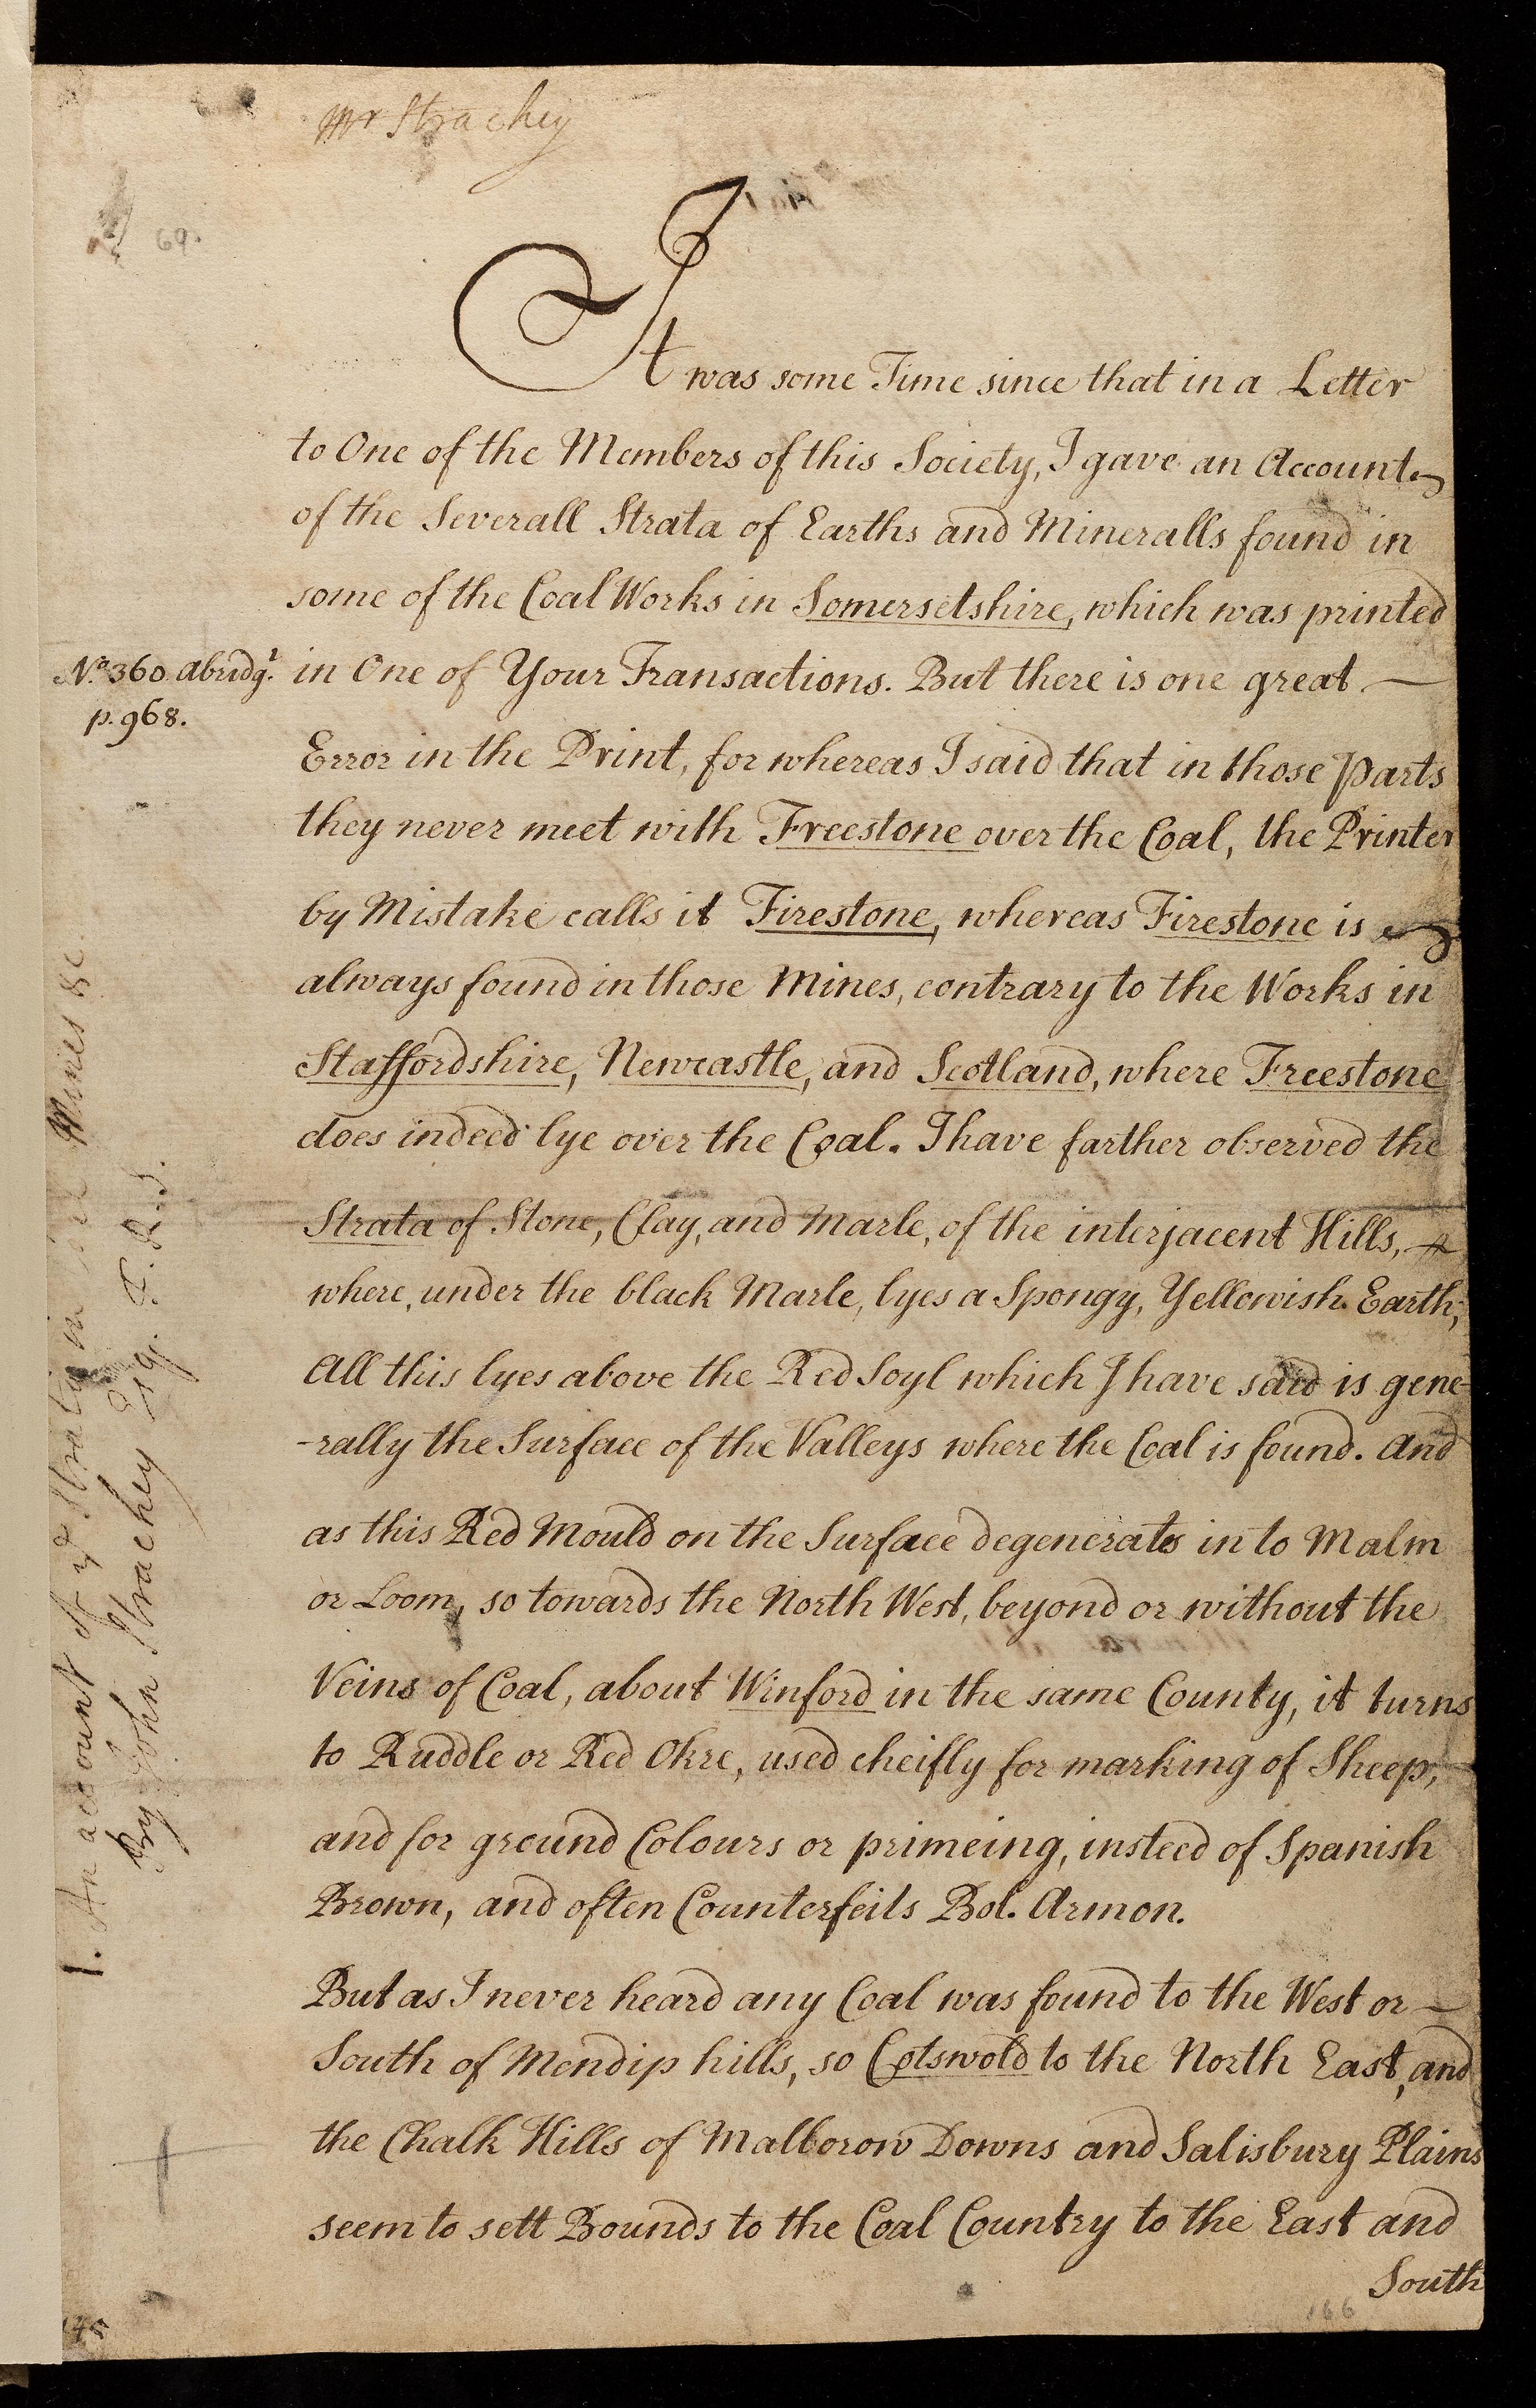 Mr Strachey
69.
It was some Time since that in a Letter
to One of the Members of this Society, I gave an Account
of the Severall Strata of Earths and Mineralls found in
some of the Coal Works in Somersetshire, which was printed
No. 360 abridgt.
p. 968.
in One of Your Transactions. But there is one great
Error in the Print, for whereas I said that in those Parts
they never meet with Freestone over the Coal, the Printer
by Mistake calls it Firestone, whereas Firestone is
always found in those Mines, contrary to the Works in
Staffordshire, Newcastle, and Scotland, where Freestone
does indeed lye over the Coal. I have farther observed the
Strata of Stone, Clay, and Marle, of the interjacent Hills,
where, under the black Marle, lyes a Spongy, Yellowish Earth;
All this lyes above the Red Soyl which I have said is gene-
-rally the Surface of the Valleys where the Coal is found. And
as this Red Mould on the Surface degenerats in to Malm
or Loom, so towards the North West, beyond or without the
Veins of Coal, about Winford in the same County, it turns
to Ruddle or Red Okre, used cheifly for marking of Sheep,
and for ground Colours or primeing, insteed of Spanish
Brown, and often Counterfeits Bol. Armon.
But as I never heard any Coal was found to the West or
South of Mendip hills, so Cotswold to the North East, and
the Chalk Hills of Malborow Downs and Salisbury Plains
seem to sett Bounds to the Coal Country to the East and
South
166
145
1. An account of ye Strata in Mines &c.
By John Strachey Esq. F.R.S.